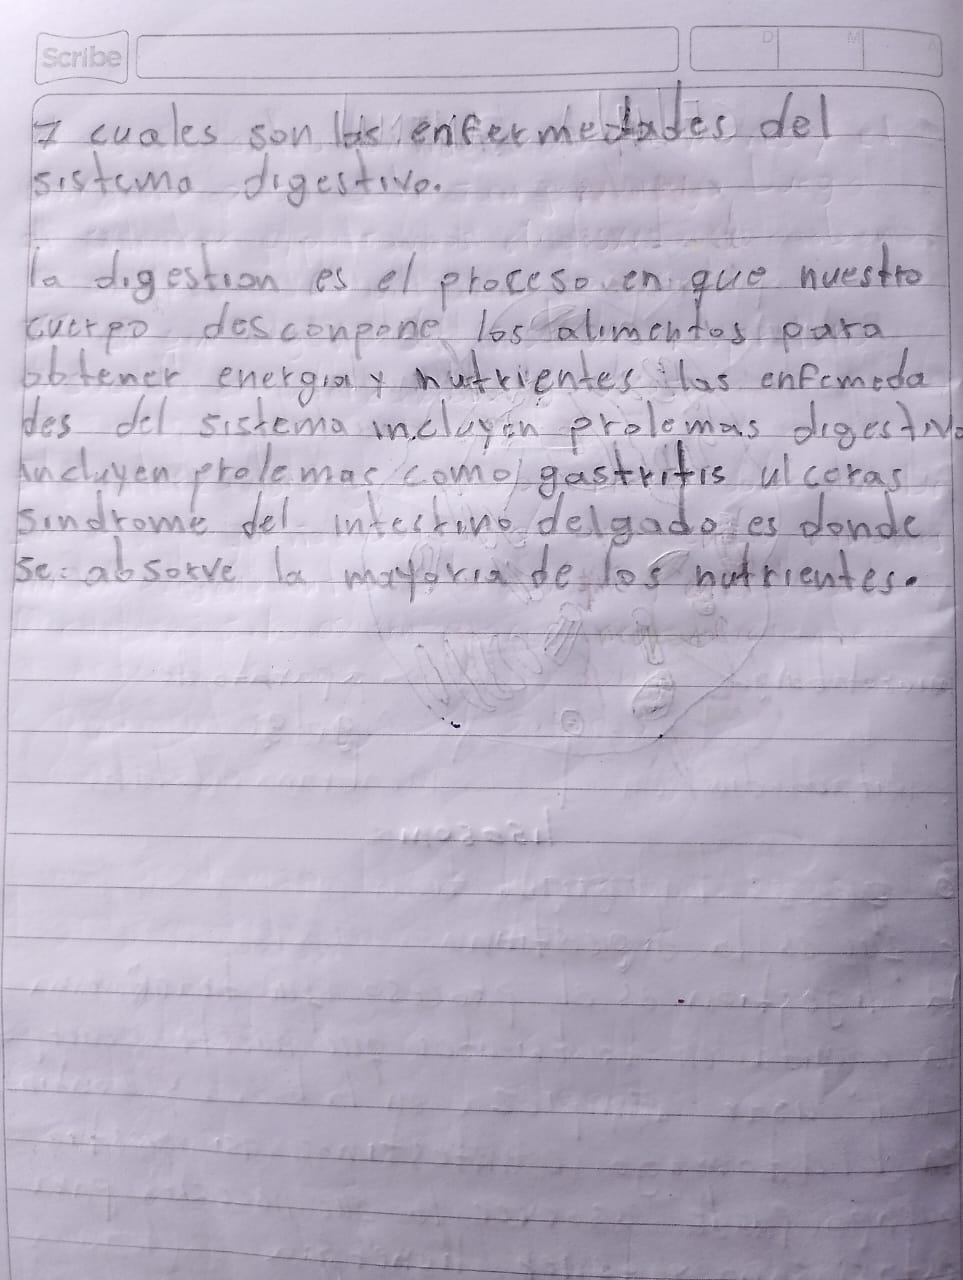 Scribe
D M A
7 cuales son las enfermedades del
sistema digestivo.
la digestion es el proceso en que nuestro
cuerpo desconpone los alimentos para
obtener energia y nutrientes las enfemeda
des del sistema incluyen prolemas digestivo
incluyen prolemas como gastritis ulceras
sindrome del intestino delgado es donde
se absorve la mayoria de los nutrientes.